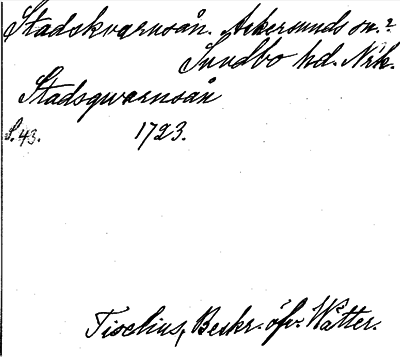 Stadskvarnsån. Askersunds sn.?
Sundbo hd. Nrk.
Stadsqwarnsån
S. 43. 1723.
Tiselius, Beskr. öfv. Wätter.